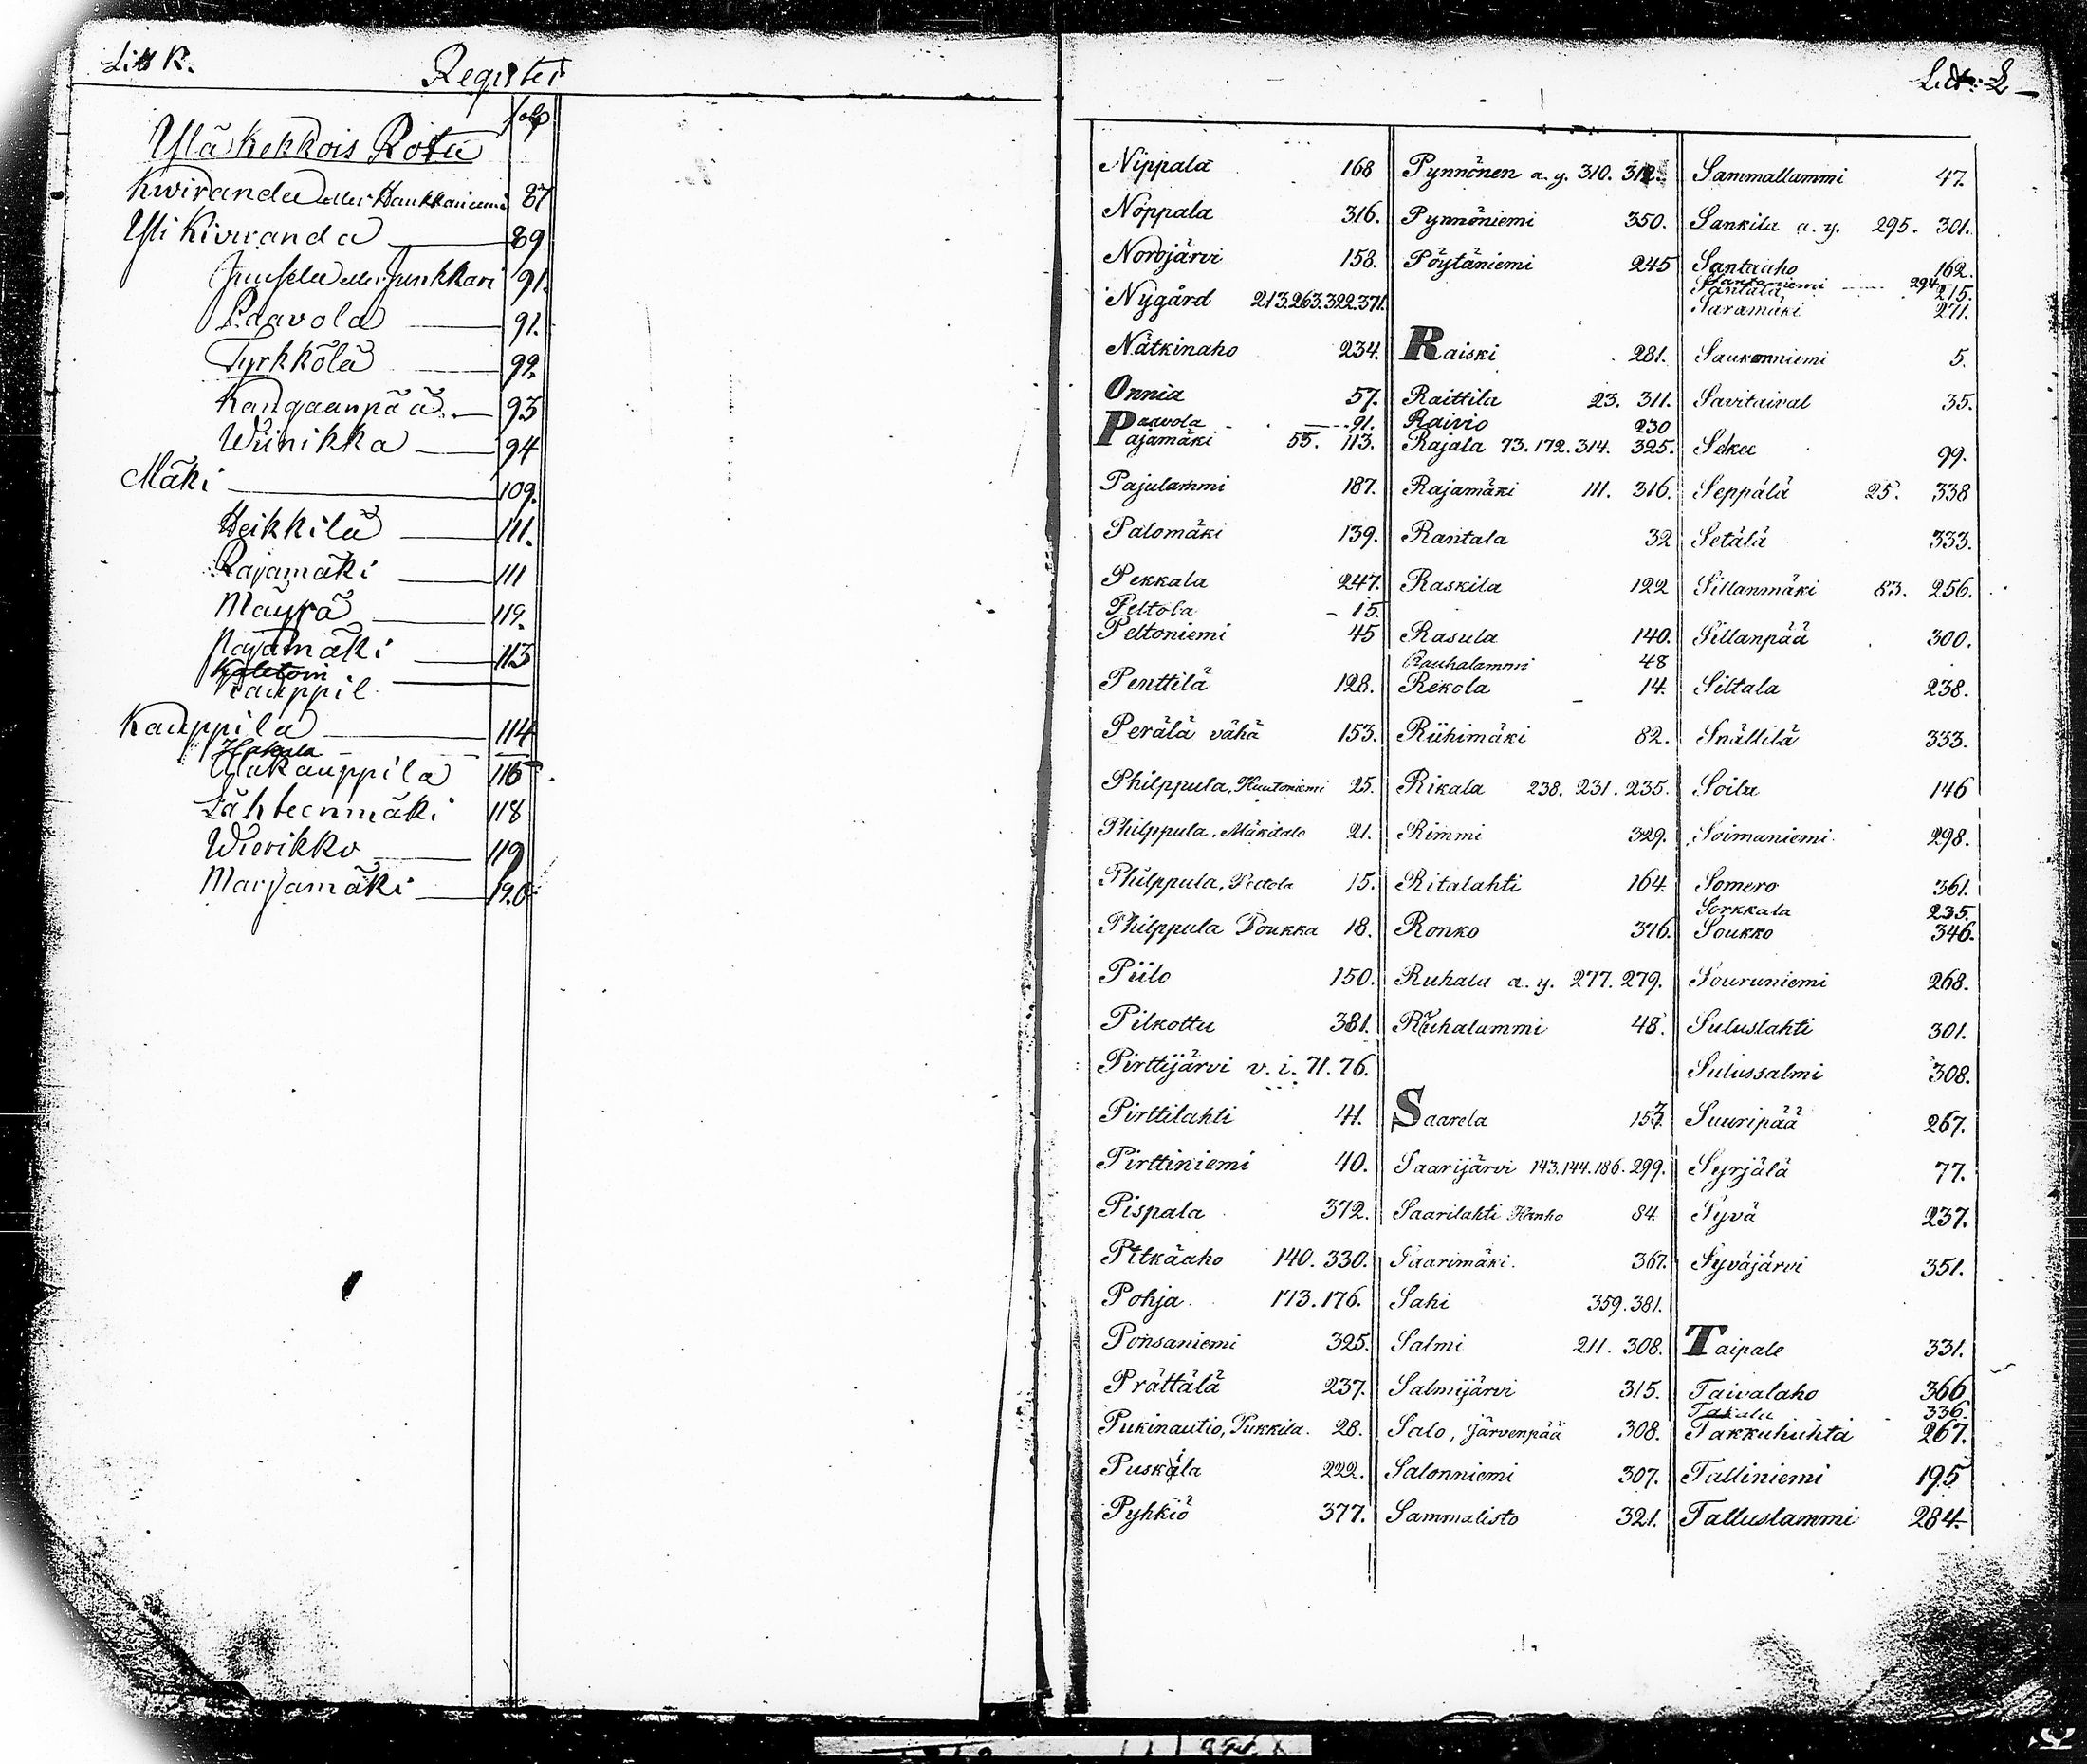 Litt K.
Register
folio
Yläkekkois Rotu
Kiviranda eller Haukkaniemi 87
Yli Kiviranda 89
Junsela eller Junkkari 91.
Paavola 91.
Tyrkkölä 92.
Kangaanpää 93
Wiinikka 94
Mäki 109.
Heikkilä 111.
Rajamäki 111
Mäyrä 112.
Pajamäki 113
Kauppil
Kauppila 114
Hakala
Yläkauppila 116
Lähteenmäki 118
Wierikko 119
Marjamäki 120
Litt: L
Nippala 168
Noppala 316.
Norojärvi 158.
Nygård 213.263.322.371.
Nätkinaho 234.
Onnia 57.
Paavola 91.
Pajamäki 55. 113.
Pajulammi 187.
Palomäki 139.
Pekkala 247.
Peltola 15.
Peltoniemi 45
Penttilä 128.
Perälä vähä 153.
Philppula, Huutoniemi 25.
Philppula, Mäkitalo 21.
Philppula, Peltola 15.
Philppula Poukka 18.
Piilo 150.
Pilkottu 381.
Pirttijärvi v. i. 71. 76.
Pirttilahti 41.
Pirttiniemi 40.
Pispala 372.
Pitkäaho 140. 330.
Pohja 173. 176.
Ponsaniemi 325.
Prättälä 237.
Pukinautio, Pukkila. 28.
Puskala 222.
Pyhkiö 377.
Pynnönen a. y. 310. 312.
Pynnöniemi 350.
Pöytäniemi 245
Raiski 281.
Raittila 23. 311.
Raivio 230
Rajala 73. 172. 314. 325.
Rajamäki 111. 316.
Rantala 32
Raskila 122
Rasula 140.
Rauhalammi 48
Rekola 14.
Riihimäki 82.
Rikala 238. 231. 235.
Rimmi 329.
Ritalahti 164.
Ronko 376.
Ruhala a. y. 277. 279.
Ruhalammi 48.
Saarela 157.
Saarijärvi 143.144.186.299.
Saarilahti Hanho 84.
Saarimäki. 367.
Sahi 359. 381.
Salmi 211. 308.
Salmijärvi 315.
Salo, Järvenpää 308.
Salonniemi 307.
Sammalisto 321.
Sammallammi 47.
Sankila a. y. 295. 301.
Santaaho 162.
Santaniemi 294
Santala 215.
Saramäki 271.
Saukonniemi 5.
Savitaival 35.
Sekee 99.
Seppälä 25. 338
Setälä 333.
Sillanmäki 83. 256.
Sillanpää 300.
Siltala 238.
Snällilä 333.
Soila 146
Soimaniemi 298.
Somero 361.
Sorkkala 235.
Soukko 346.
Souruniemi 268.
Suluslahti 301.
Sulussalmi 308.
Suuripää 267.
Syrjälä 77.
Syvä 237.
Syväjärvi 351.
Taipale 331.
Taivalaho 366
Takala 336.
Takkuhuhta 267.
Talliniemi 195
Talluslammi 284.